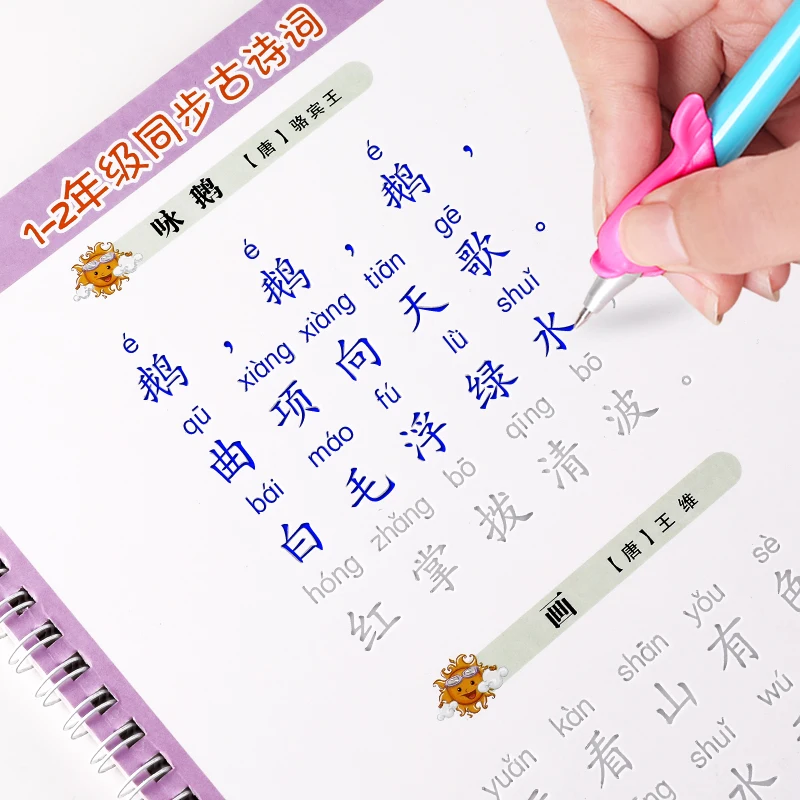 1-2年级同步古诗词
咏鹅 【唐】骆宾王
é é é
鹅，鹅，鹅，
qū xiàng xiàng tiān gē
曲项向天歌。
bái máo fú lǜ shuǐ
白毛浮绿水
hóng zhǎng bō qīng bō
红掌拨清波。
画 【唐】王维
yuǎn kàn shān yǒu sè
看山有色
shuǐ wú
水